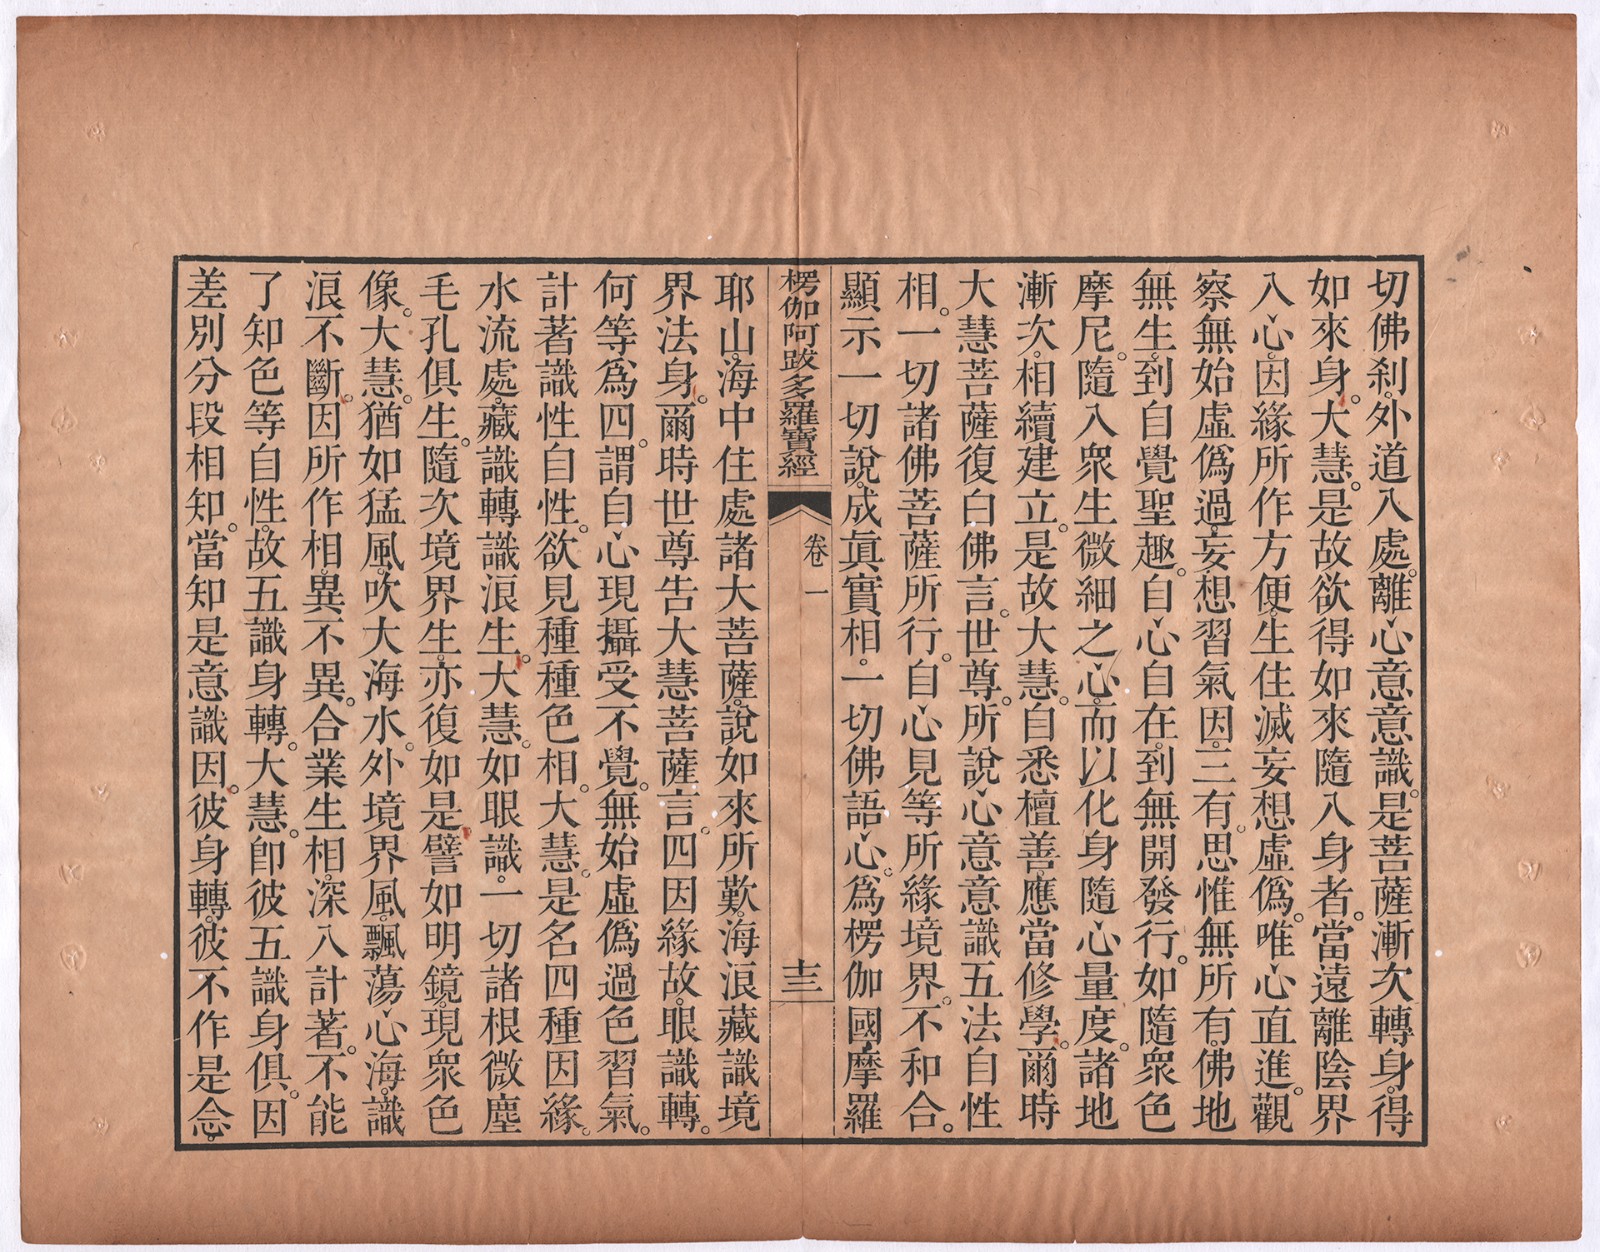 切佛刹。外道入處。離心意意識。是菩薩漸次轉身。得
如來身。大慧。是故欲得如來隨入身者。當遠離陰界
入心。因緣所作方便。生住滅妄想虛僞。唯心直進。觀
察無始虛僞過。妄想習氣因。三有。思惟無所有。佛地
無生。到自覺聖趣。自心自在。到無開發行。如隨衆色
摩尼。隨入衆生微細之心。而以化身隨心量度。諸地
漸次。相續建立。是故大慧。自悉檀善。應當修學。爾時
大慧菩薩復白佛言。世尊。所說心意意識五法自性
相。一切諸佛菩薩所行。自心見等所緣境界。不和合。
顯示一切說。成眞實相。一切佛語心。爲楞伽國摩羅
楞伽阿跋多羅寶經
卷一
十三
耶山。海中住處諸大菩薩。說如來所歎。海浪藏識境
界法身。爾時世尊告大慧菩薩言。四因緣故。眼識轉。
何等爲四。謂自心現攝受不覺。無始虛僞過色習氣。
計著識性自性。欲見種種色相。大慧。是名四種因緣。
水流處。藏識轉識浪生。大慧。如眼識。一切諸根微塵
毛孔俱生。隨次境界生。亦復如是。譬如明鏡。現衆色
像。大慧。猶如猛風。吹大海水。外境界風。飄蕩心海。識
浪不斷。因所作相。異不異。合業生相。深入計著。不能
了知色等自性。故五識身轉。大慧。卽彼五識身俱。因
差別分段相知。當知是意識因。彼身轉。彼不作是念。